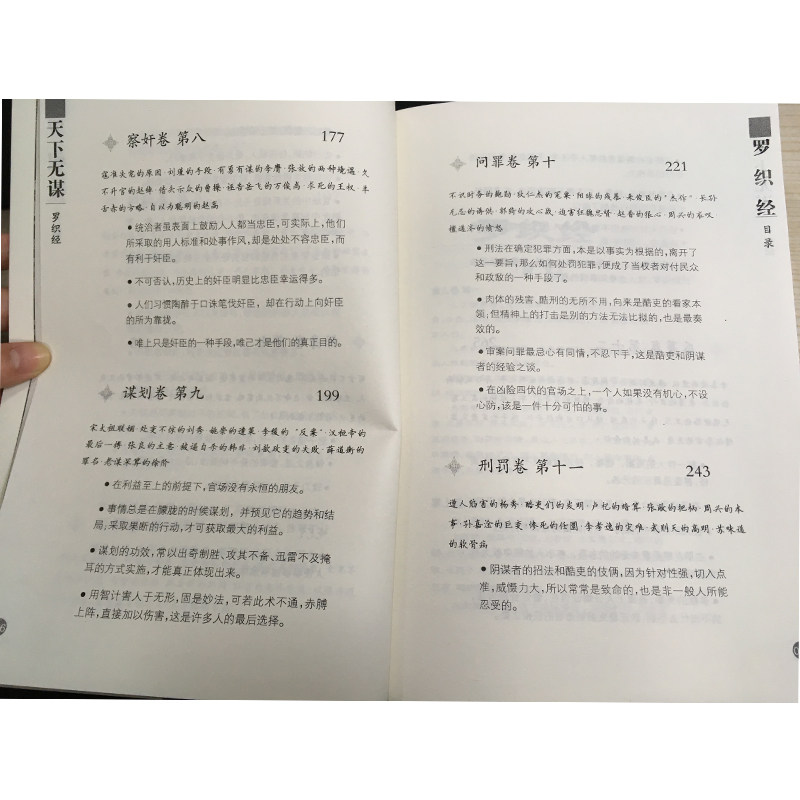 天下无谋
罗织经
察奸卷 第八 177
寇准失宠的原因·刘瑾的手段·有勇有谋的李膺·张敌的两种境遇·久
不升官的赵绰·借头示众的曹操·诬告岳飞的万俟卨·不死的王权·辛
去弃的方略·自以为聪明的赵高
●统治者虽表面上鼓励人人都当忠臣,可实际上,他们
所采取的用人标准和处事作风,却是处处不容忠臣,而
有利于奸臣。
●不可否认,历史上的奸臣明显比忠臣幸运得多。
●人们习惯陶醉于口诛笔伐奸臣,却在行动上向奸臣
的所为靠拢。
●唯上只是奸臣的一种手段,唯己才是他们的真正目的。
谋划卷 第九 199
宋太祖联姻·处变不惊的刘秀·施崇的遗策·李煖的“反案”·汉桓帝的
最后一搏·张良的主意·被逼自杀的韩非·刘歆政变的失败·薛道衡的
罪名·老谋深算的徐阶
●在利益至上的前提下,官场没有永恒的朋友。
●事情总是在朦胧的时候谋划,并预见它的趋势和结
局;采取果断的行动,才可获取最大的利益。
●谋划的功效,常以出奇制胜、攻其不备、迅雷不及掩
耳的方式实施,才能真正体现出来。
●用智计害人于无形,固是妙法,可若此术不通,赤膊
上阵,直接加以伤害,这是许多人的最后选择。
罗织经
目录
问罪卷 第十 221
不识时务的鲍勋·狄仁杰的冤案·阳球的残暴·来俊臣的“杰作”·长孙
无忌的诬供·郭崎的攻心战·迫害狂魏忠贤·赵普的狠心·周兴的哀叹
催道济的愤怒
●刑法在确定犯罪方面,本是以事实为根据的,离开了
这一要旨,那么如何处罚犯罪,便成了当权者对付民众
和政敌的一种手段了。
●肉体的残害、酷刑的无所不用,向来是酷吏的看家本
领;但精神上的打击是别的方法无法比拟的,也是最奏
效的。
●审案问罪最忌心有同情,不忍下手,这是酷吏和阴谋
者的经验之谈。
●在凶险四伏的官场之上,一个人如果没有机心,不设
心防,该是一件十分可怕的事。
刑罚卷 第十一 243
遭人陷害的杨秀·酷吏们的发明·卢杞的暗算·张敞的把柄·周兴的本
事·孙嘉淦的巨变·惨死的任圜·李孝逸的灾难·武则天的高明·苏味道
的软骨病
●阴谋者的招法和酷吏的伎俩,因为针对性强,切入点
准,威慑力大,所以常常是致命的,也是非一般人所能
忍受的。